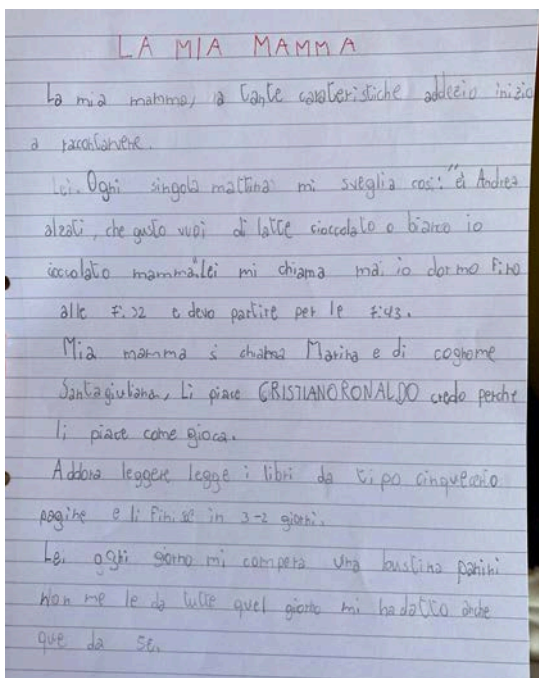 LA MIA MAMMA
La mia mamma, a tante carateristiche addezio inizio
a raccontarvene.
Lei. Ogni singola mattina mi sveglia cosi: "ei Andrea
alzati, che gusto vuoi di latte cioccolato o bianco io
cioccolato mamma" Lei mi chiama mai io dormo fino
alle 7:22 e devo partire per le 7:43.
Mia mamma si chiama Marina e di cognome
Santagiuliana, Li piace CRISTIANO RONALDO credo perche
li piace come gioca.
Addora leggere legge i libri da tipo cinquecento
pagine e li finise in 3-2 giorni.
Lei ogni giorno mi compera una bustina panini
non me le da tutte quel giorno mi ha datto anche
que da sei.